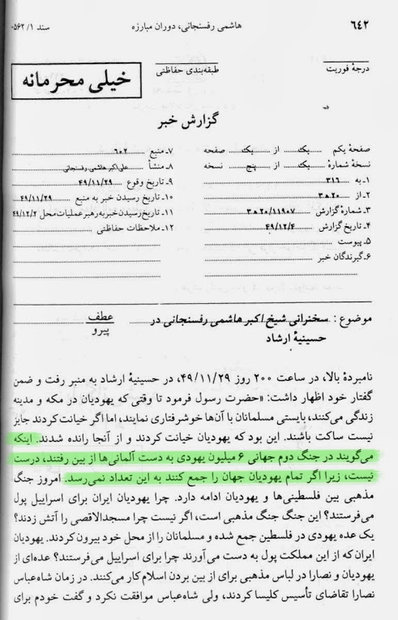 ۶۴۲
هاشمی رفسنجانی، دوران مبارزه
سند ۱/ ۰۵۶۲
درجهٔ فوریت
طبقه‌بندی حفاظتی
خیلی محرمانه
گزارش خبر
صفحهٔ یکم یک از یک صفحه
نسخهٔ شمارهٔ یک از پنج نسخه
۱ـ به ۳۱۶
۲ـ از ۲۰ ه ۳
۳ـ شمارهٔ گزارش ۱۱۹۰۷/ ۲۰ ه ۳
۴ـ تاریخ گزارش ۴۹/۱۲/۴
۵ـ پیوست
۶ـ گیرندگان خبر
۷ـ منبع ۶۰۲
۸ـ منشأ علی‌اکبر هاشمی رفسنجانی
۹ـ تاریخ وقوع ۴۹/۱۱/۲۹
۱۰ـ تاریخ رسیدن خبر به منبع ۴۹/۱۱/۲۹
۱۱ـ تاریخ رسیدن خبر به رهبر عملیات محل ۴۹/۱۲/۲
۱۲ـ ملاحظات حفاظتی
موضوع : سخنرانی شیخ اکبر هاشمی رفسنجانی در
حسینیهٔ ارشاد
عطف
پیرو
نامبردهٔ بالا، در ساعت ۲۰۰ روز ۴۹/۱۱/۲۹، در حسینیهٔ ارشاد به منبر رفت و ضمن
گفتار خود اظهار داشت: «حضرت رسول فرمود تا وقتی که یهودیان در مکه و مدینه
زندگی می‌کنند، بایستی مسلمانان با آن‌ها خوشرفتاری نمایند، اما اگر خیانت کردند جایز
نیست ساکت باشند. این بود که یهودیان خیانت کردند و از آنجا رانده شدند. اینکه
می‌گویند در جنگ دوم جهانی ۶ میلیون یهودی به دست آلمانی‌ها از بین رفتند، درست
نیست، زیرا اگر تمام یهودیان جهان را جمع کنند به این تعداد نمی‌رسد. امروز جنگ
مذهبی بین فلسطینی‌ها و یهودیان ادامه دارد. چرا یهودیان ایران برای اسراییل پول
می‌فرستند؟ این جنگ جنگ مذهبی است، اگر نیست چرا مسجدالاقصی را آتش زدند؟
یک عده یهودی در فلسطین جمع شده و مسلمانان را از محل خود بیرون کردند. یهودیان
ایران که از این مملکت پول به دست می‌آورند چرا برای اسراییل می‌فرستند؟ عده‌ای از
یهودیان و نصارا در لباس مذهبی برای از بین بردن اسلام کار می‌کنند. در زمان شاه‌عباس
نصارا تقاضای تأسیس کلیسا کردند، ولی شاه‌عباس موافقت نکرد و گفت خودم برای